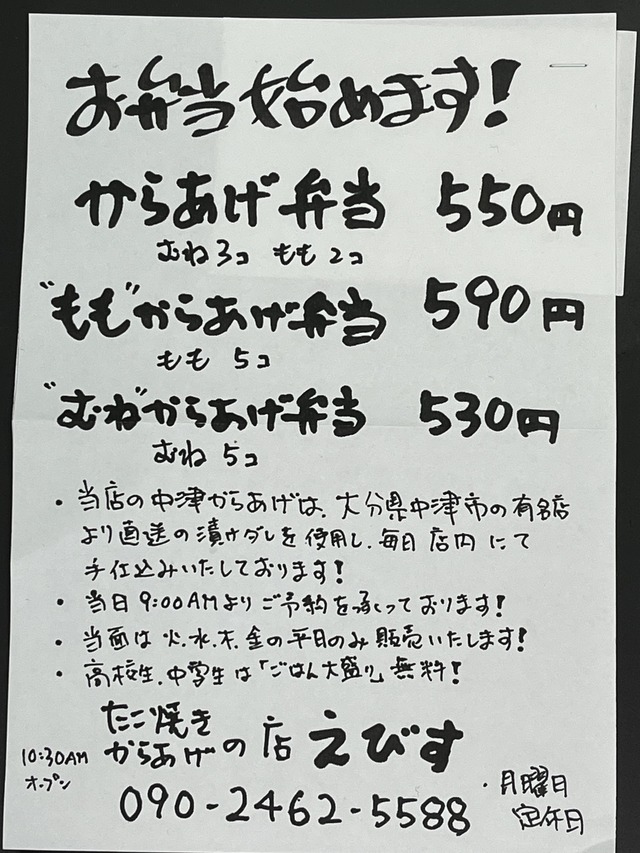 お弁当始めます!
からあげ弁当 550円
むね3コ もも2コ
"もも"からあげ弁当 590円
もも 5コ
"むね"からあげ弁当 530円
むね 5コ
・当店の中津からあげは、大分県中津市の有名店
より直送の漬けダレを使用し、毎日店内にて
手仕込みいたしております!
・当日9:00AMよりご予約を承っております!
・当面は火.水.木.金の平日のみ販売いたします!
・高校生.中学生は「ごはん大盛り」無料!
たこ焼き
からあげの店 えびす
10:30AM
オープン
090-2462-5588
・月曜日
定休日